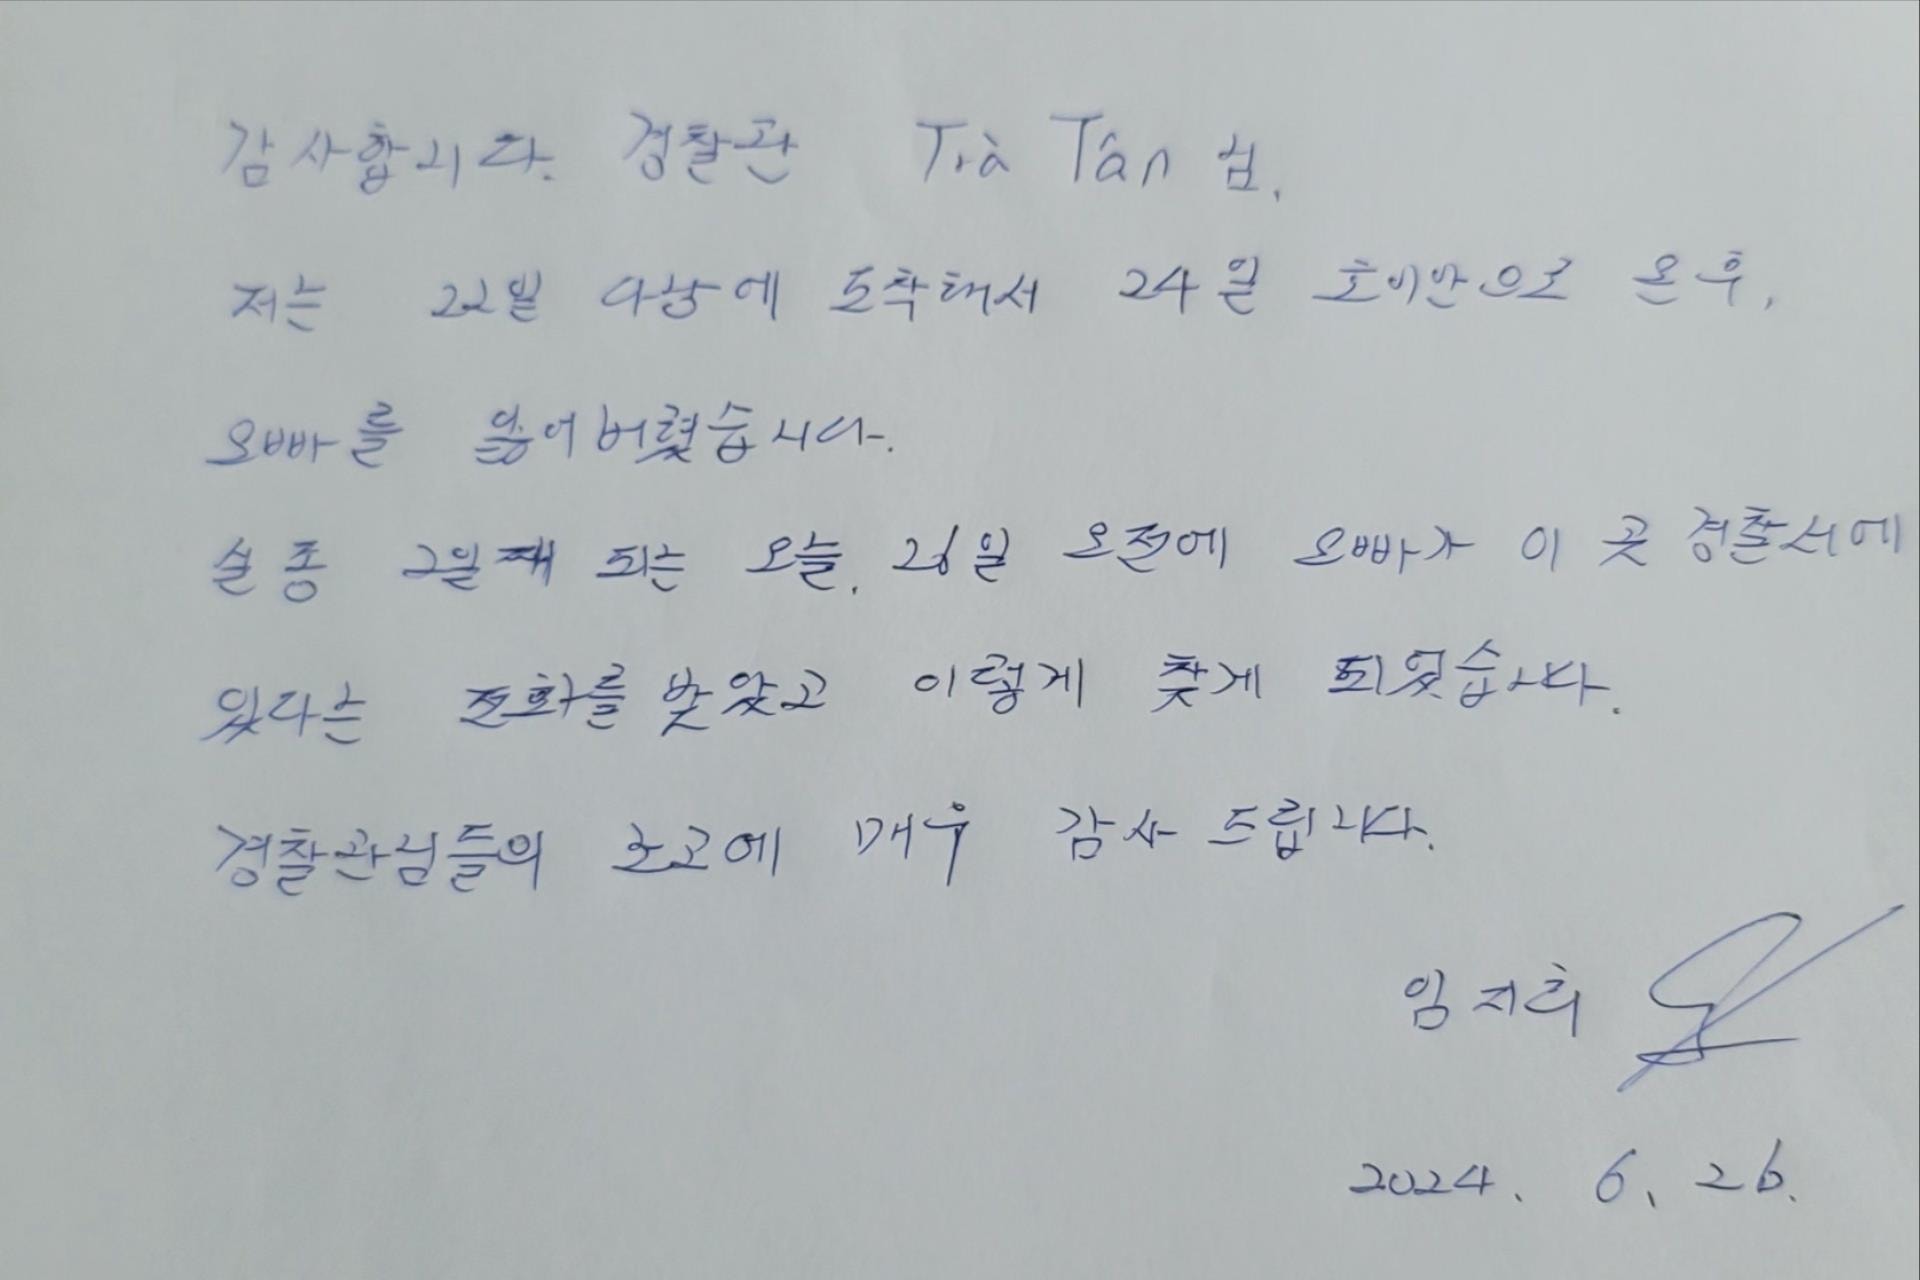 감사합니다. 경찰관 Trà Tân 님.
저는 22일 다낭에 도착해서 24일 호이안으로 온 후,
오빠를 잃어버렸습니다.
실종 2일째 되는 오늘, 26일 오전에 오빠가 이 곳 경찰서에
있다는 전화를 받았고 이렇게 찾게 되었습니다.
경찰관님들의 노고에 매우 감사드립니다.
임지희
2024. 6. 26.